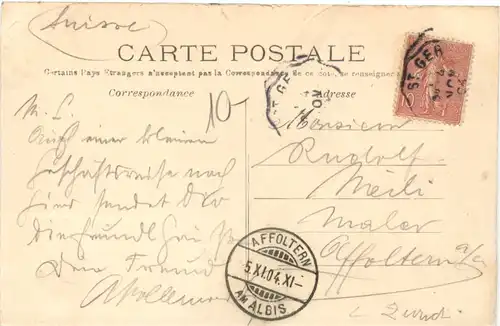 Suisse
CARTE POSTALE
Certains Pays Etrangers n'acceptent pas la Correspondance de ce côté, se renseigner
Correspondance
Adresse
10
M. L.
Auf einer kleinen
Geschäftsreise nach
hier sendet Dir
die freundl.
Dein Freund
Monsieur
Rudolf
Meili
Maler
Affoltern a/A
Zürich
ST GER
NOV
ST GER
NOV
AFFOLTERN
5.XI.04.XI-
AM ALBIS